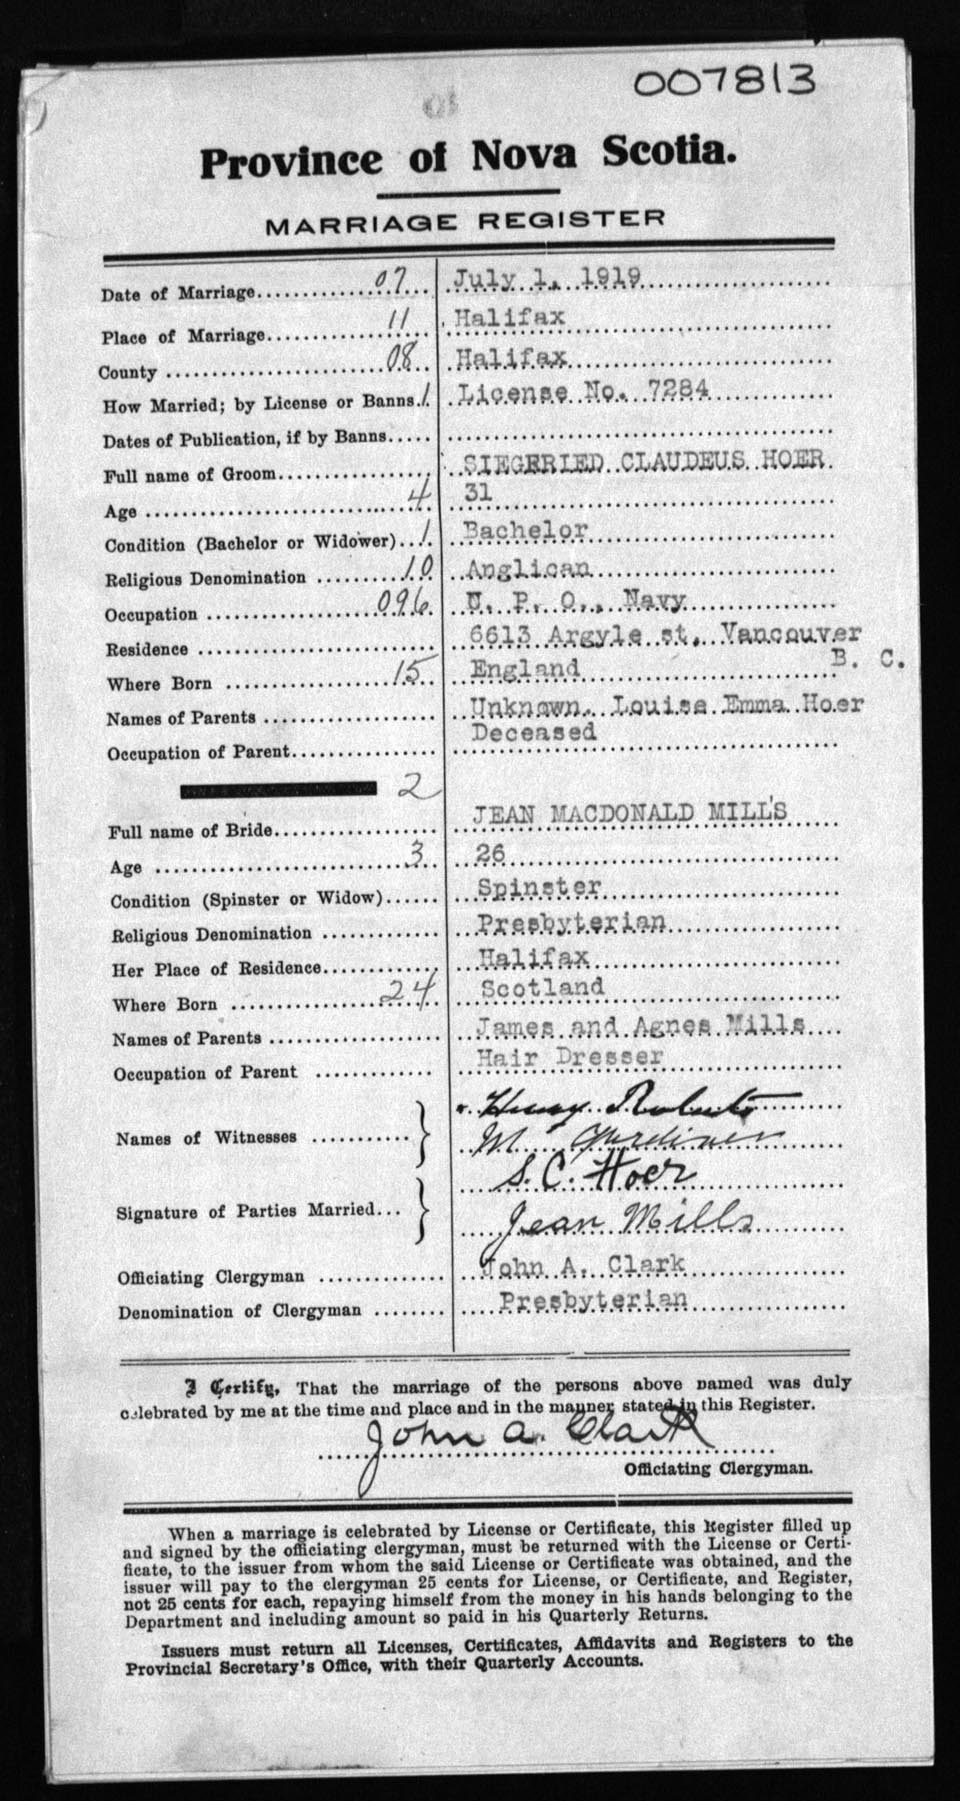 007813
Province of Nova Scotia.
MARRIAGE REGISTER
Date of Marriage 07 July 1, 1919
Place of Marriage 11 Halifax
County 08 Halifax
How Married; by License or Banns 1 License No. 7284
Dates of Publication, if by Banns
Full name of Groom SIEGFRIED CLAUDEUS HOER
Age 4 31
Condition (Bachelor or Widower) 1 Bachelor
Religious Denomination 10 Anglican
Occupation 096 U. P. O., Navy
Residence 6613 Argyle st, Vancouver
B. C.
Where Born 15 England
Names of Parents Unknown. Louisa Emma Hoer
Occupation of Parent Deceased
2
Full name of Bride JEAN MACDONALD MILLS
Age 3 26
Condition (Spinster or Widow) Spinster
Religious Denomination Presbyterian
Her Place of Residence Halifax
Where Born 24 Scotland
Names of Parents James and Agnes Mills
Occupation of Parent Hair Dresser
Henry Roberts
Names of Witnesses M Gardiner
S. C. Hoer
Signature of Parties Married Jean Mills
Officiating Clergyman John A. Clark
Denomination of Clergyman Presbyterian
I Certify, That the marriage of the persons above named was duly
celebrated by me at the time and place and in the manner stated in this Register.
John A. Clark
Officiating Clergyman.
When a marriage is celebrated by License or Certificate, this Register filled up
and signed by the officiating clergyman, must be returned with the License or Certi-
ficate, to the issuer from whom the said License or Certificate was obtained, and the
issuer will pay to the clergyman 25 cents for License, or Certificate, and Register,
not 25 cents for each, repaying himself from the money in his hands belonging to the
Department and including amount so paid in his Quarterly Returns.
Issuers must return all Licenses, Certificates, Affidavits and Registers to the
Provincial Secretary's Office, with their Quarterly Accounts.